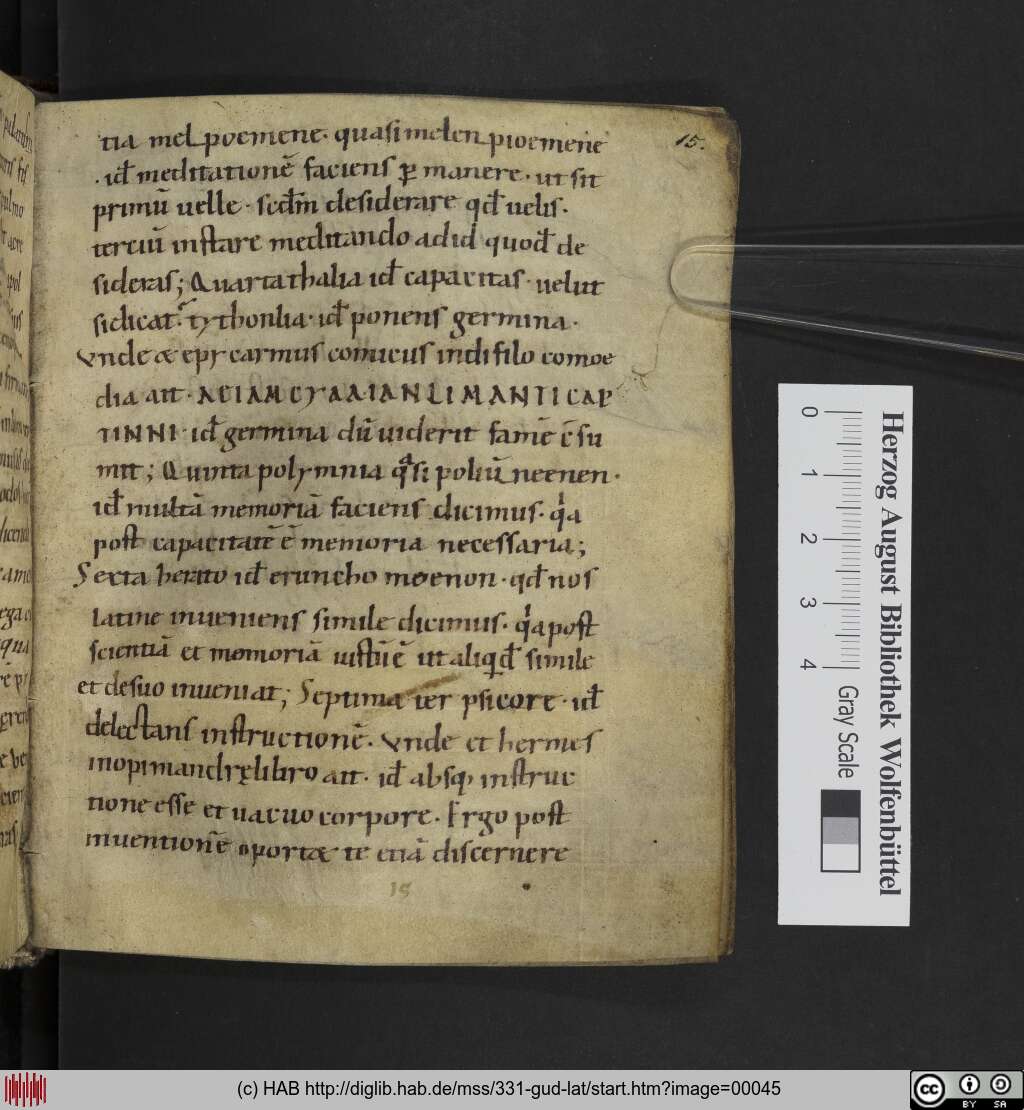 15.
tia melpoemene· quasi melen pioemene
·id̄ meditationē faciens ꝑmanere· ut sit
primū uelle· scd̄m desiderare qd̄ uelis·
terciū instare meditando ad id quod̄ de
sideras; Quarta thalia id̄ capacitas· uelut
si dicat̄ tythonlia· id̄ ponens germina·
Vnde æ epycarmus comicus in difilo comoe
dia ait·
TINNI· id̄ germina dū uiderit famē ē su
mit; Quinta polymnia q̄si poliū neenen·
id̄ multā memoriā faciens dicimus· qa
post capacitatē ē memoria necessaria;
Sexta herato id̄ eruncho moenon· qd̄ nos
latine inueniens simile dicimus· qa post
scientiā et memoriā iustūē ut aliqid̄ simile
et de suo inueniat; Septima ter psicore· id̄
delectans instructionē· Vnde et hermes
in opimandrę libro ait· id̄ absq; instruc
tione esse et uacuo corpore· Ergo post
inuentionē oportæ te etiā discernere
15
Herzog August Bibliothek Wolfenbüttel
0 1 2 3 4 Gray Scale
(c) HAB http://diglib.hab.de/mss/331-gud-lat/start.htm?image=00045
cc BY SA